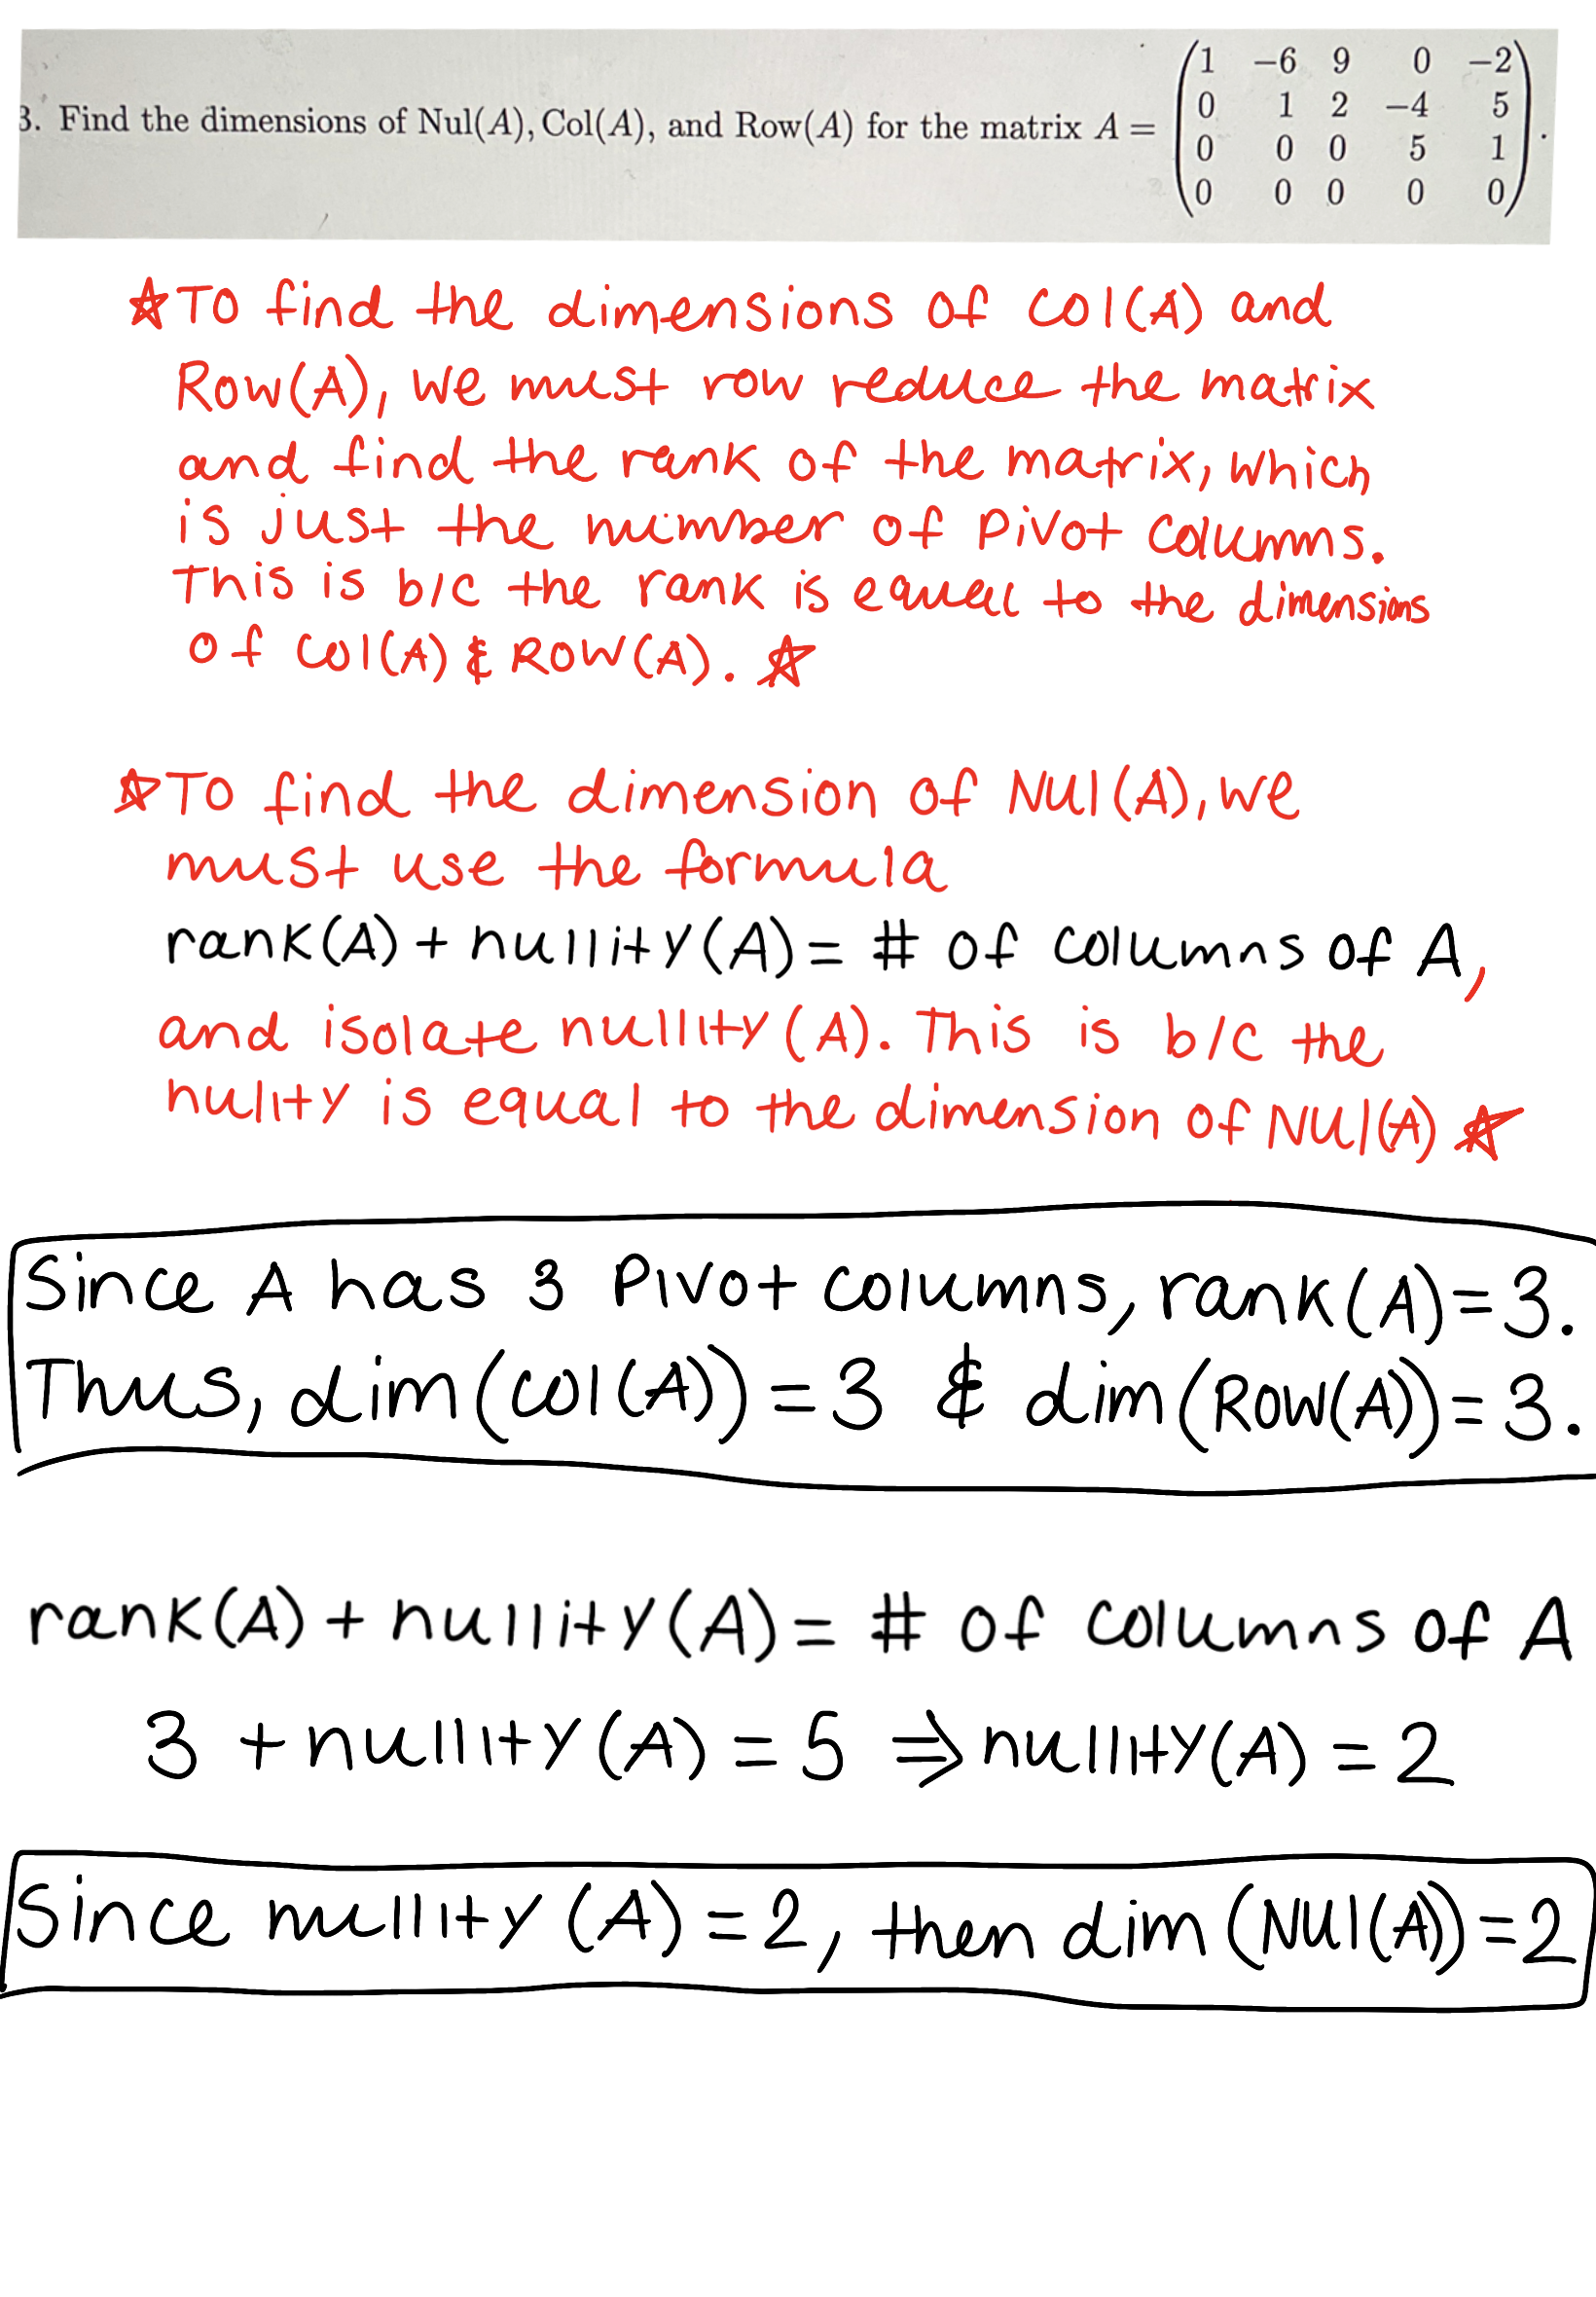 3. Find the dimensions of Nul(A), Col(A), and Row(A) for the matrix A =
1 -6 9 0 -2
0 1 2 -4 5
0 0 0 5 1
0 0 0 0 0
.
☆To find the dimensions of Col(A) and
Row(A), we must row reduce the matrix
and find the rank of the matrix, which
is just the number of pivot columns.
This is b/c the rank is equal to the dimensions
of Col(A) & Row(A). ☆
☆To find the dimension of Nul(A), we
must use the formula
rank(A) + nullity(A) = # of columns of A,
and isolate nullity(A). This is b/c the
nulity is equal to the dimension of Nul(A) ☆
Since A has 3 pivot columns, rank(A)=3.
Thus, dim(Col(A))=3 & dim(Row(A))=3.
rank(A) + nullity(A) = # of columns of A
3 + nullity(A) = 5 ⇒ nullity(A) = 2
Since nullity (A) = 2, then dim (Nul(A)) = 2